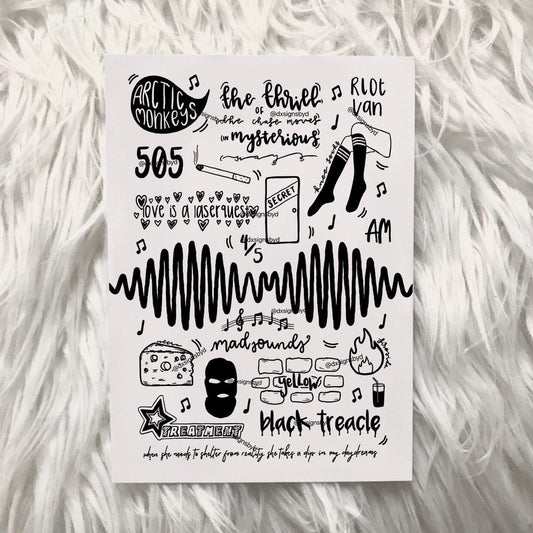 ARCTIC
MONKEYS
the thrill
OF
the chase moves
IN
mysterious
@dxsignsbyd
RIOT
VAN
@dxsignsbyd
505
@dxsignsbyd
knee socks
SECRET
love is a laserquest
@dxsignsbyd
4/5
AM
@dxsignsbyd
@dxsignsbyd
mad sounds
@dxsignsbyd
@dxsignsbyd
@dxsignsbyd
yellow
STAR
TREATMENT
black treacle
when she needs to shelter from reality she takes a dip in my daydreams